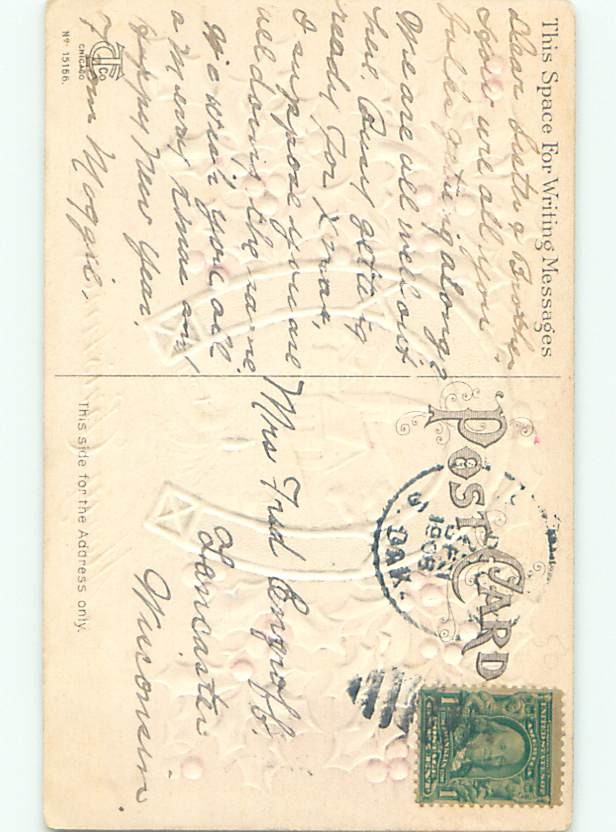 This Space For Writing Messages
Dear Sister & Brother
How are all you
folks getting along?
We are all well out
here. Busy getting
ready for Xmas,
I suppose you are
all doing the same
We wish you all
a Merry Xmas and
Happy New Year.
From Maggie.
CO
CHICAGO
Nº 15166.
POST CARD
1908
S. DAK.
UNITED STATES OF AMERICA
1 1
Mrs Fred
Lancaster
Wisconsin.
This side for the Address only.